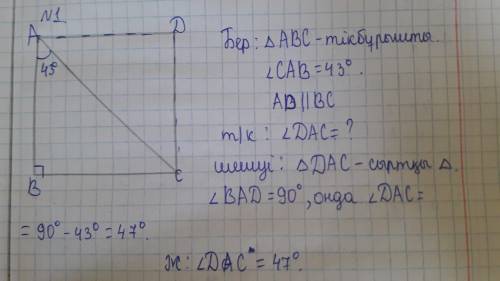 N1
A
D
43°
B
C
Бер: △ABC - тікбұрышты.
∠CAB = 43°.
AD || BC
т/к: ∠DAC = ?
шешуі: △DAC - сыртқы △.
∠BAD = 90°, онда ∠DAC =
= 90° - 43° = 47°.
Ж: ∠DAC = 47°.